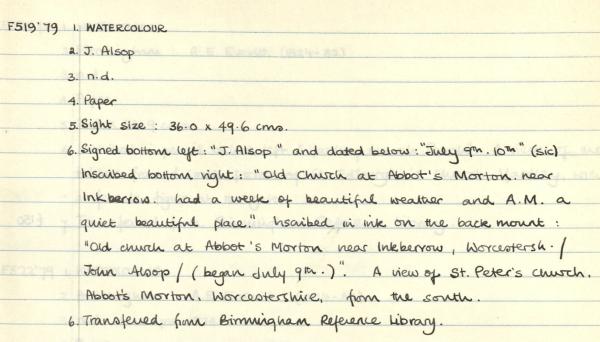 F519'79 1. WATERCOLOUR
2. J. Alsop
3. n.d.
4. Paper
5. Sight size : 36.0 x 49.6 cms.
6. Signed bottom left : "J. Alsop" and dated below : "July 9th. 10th" (sic)
Inscribed bottom right : "Old Church at Abbot's Morton. near
Inkberrow. had a week of beautiful weather and A.M. a
quiet beautiful place." Inscribed in ink on the back mount :
"Old church at Abbot's Morton near Inkberrow, Worcestersh. /
John Alsop / (began July 9th.)". A view of St. Peter's church.
Abbot's Morton, Worcestershire, from the south.
6. Transferred from Birmingham Reference Library.